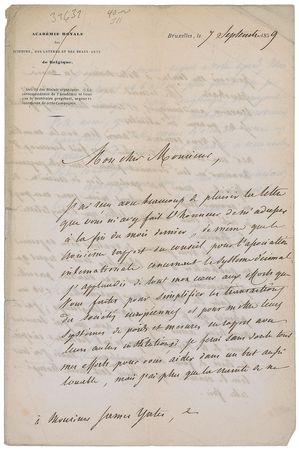 31631
ACADÉMIE ROYALE
DES
SCIENCES, DES LETTRES ET DES BEAUX-ARTS
de Belgique.
Bruxelles, le 7 Septembre 1859
Mon cher Monsieur,
J'ai reçu avec beaucoup de plaisir la lettre
que vous m'avez fait l'honneur de m'adresser
à la fin du mois dernier, de même que le
troisième rapport du conseil pour l'association
internationale concernant le système décimal
J'applaudis de tout mon cœur aux efforts que
vous faites pour simplifier les transactions
des sociétés européennes et pour mettre leurs
systèmes de poids et mesures en rapport avec
leurs autres institutions; je ferai sans doute tous
mes efforts pour vous aider dans un but aussi
louable, mais j'ai plus que la crainte de ne
à Monsieur James Yates, &